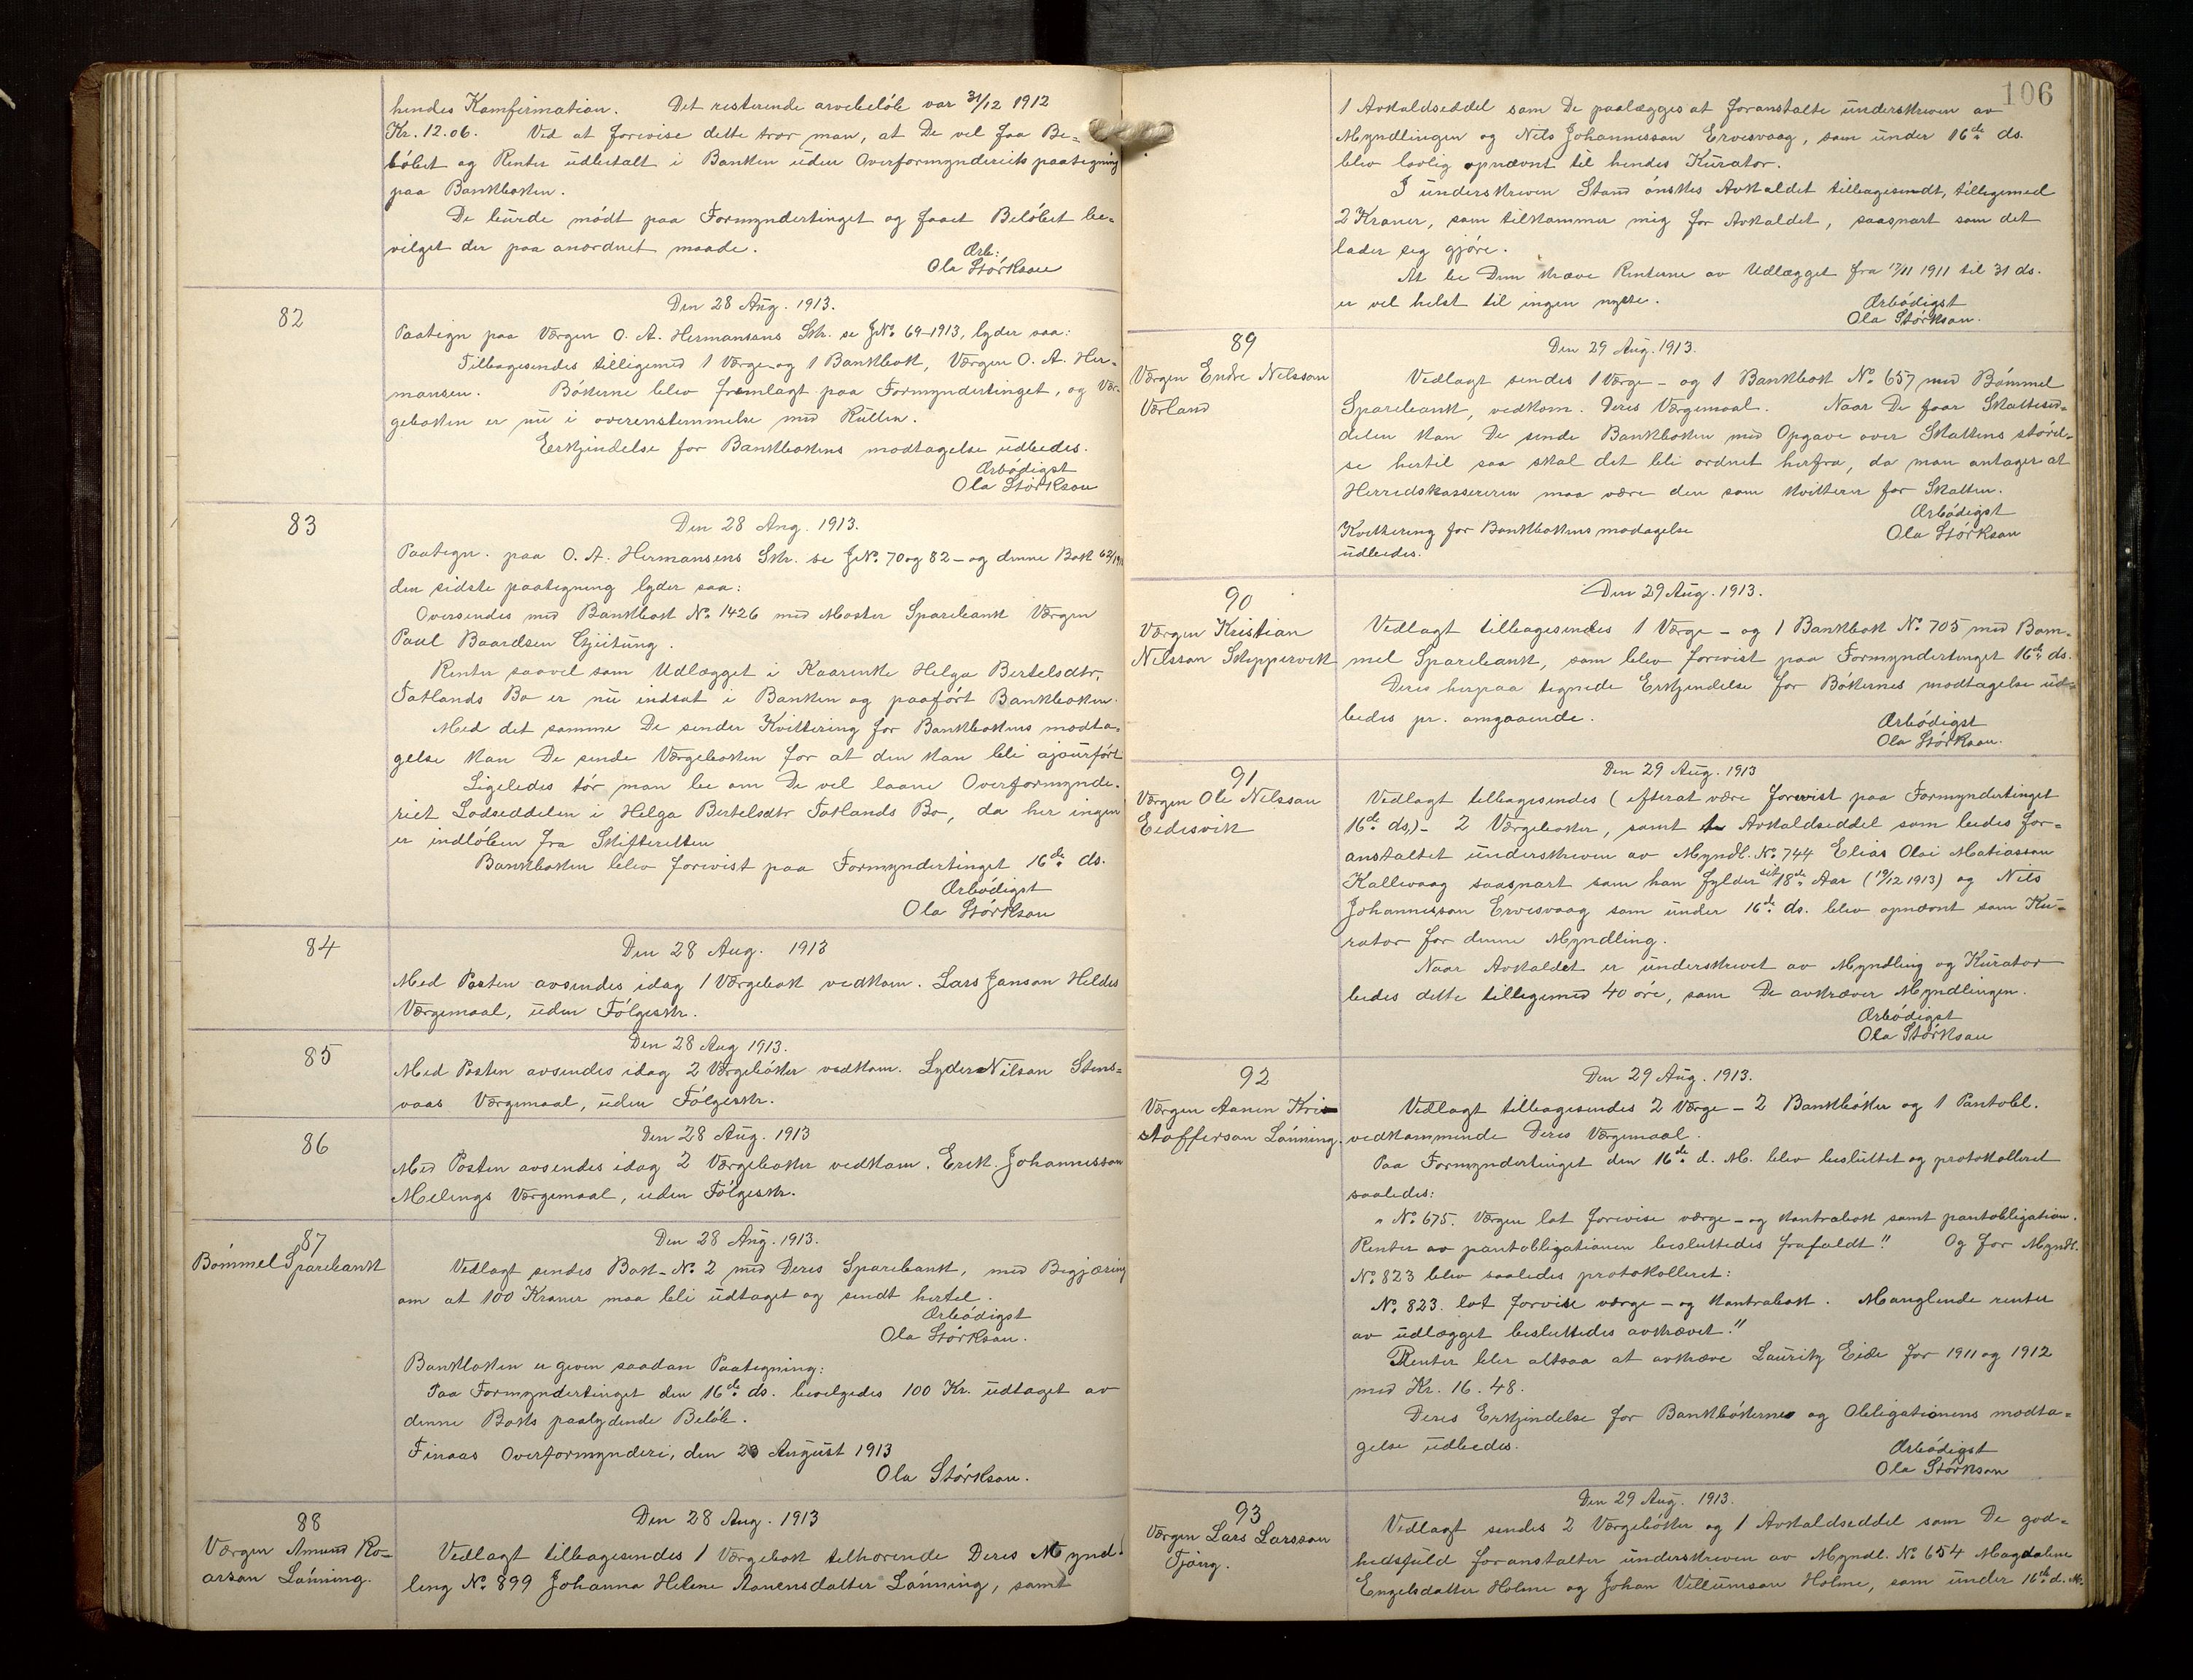 hendes Konfirmation. Det resterende arvebeløb var 31/12 1912
Kr. 12.06. Ved at forevise dette tror man, at De vil faa Be-
løbet og Renter udbetalt i Banken uden Overformynderiets paategning
paa Bankboken.
De burde mødt paa Formyndertinget og faaet Beløbet be-
vilget der paa anordnet maade.
Ærb:
Ola Størkson
82
Den 28 Aug. 1913.
Paategn paa Værgen O. A. Hermansens Skr. se J.No. 69-1913, lyder saa:
Tilbagesendes tilligemed 1 Værge og 1 Bankbok, Værgen O. A. Her-
mansen. Bøkerne blev fremlagt paa Formyndertinget, og Vær-
geboken er nu i overensstemmelse med Rullen.
Erkjendelse for Bankbokens modtagelse udbedes.
Ærbødigst
Ola Størkson
83
Den 28 Aug. 1913.
Paategn. paa O. A. Hermansens Skr. se J.No. 70 og 82 - og denne Bok
den sidste paategning lyder saa:
Oversendes med Bankbok No. 1426 med Moster Sparebank Værgen
Paul Baardsen Gjeitung.
Renter saavel som Udlægget i Kaarenke Helga Bertelsdtr,
Tatlands Bo er nu indsat i Banken og paaført Bankboken.
Med det samme De sender Kvittering for Bankbokens modta-
gelse kan De sende Værgeboken for at den kan bli ajourført
Ligeledes tør man be om De vil laane Overformynde-
riet Lodseddelen i Helga Bertelsdtr Tatlands Bo, da her ingen
er indløben fra Skifteretten
Bankboken blev forevist paa Formyndertinget 16de ds.
Ærbødigst
Ola Størkson
84
Den 28 Aug. 1913
Med Posten avsendes idag 1 Værgebok vedkom. Lars Janson Heldes
Værgemaal, uden Følgeskr.
85
Den 28 Aug 1913.
Med Posten avsendes idag 2 Værgebøker vedkom. Lyder Nilson Stens-
vaas Værgemaal, uden Følgeskr.
86
Den 28 Aug. 1913
Med Posten avsendes idag 2 Værgebøker vedkom. Erik Johannesson
Melings Værgemaal, uden Følgeskr.
87
Bømmel Sparebank
Den 28 Aug. 1913.
Vedlagt sendes Bok-No. 2 med Deres Sparebank, med Begjæring
om at 100 Kroner maa bli udtaget og sendt hertel.
Ærbødigst
Ola Størkson.
Bankboken er given saadan Paategning:
Paa Formyndertinget den 16de ds. bevilgedes 100 Kr. udtaget av
denne Boks paalydende Beløb.
Finaas Overformynderi, den 28 August 1913
Ola Størkson.
88
Værgen Amund Ro-
arson Lønning.
Den 28 Aug. 1913
Vedlagt tilbagesendes 1 Værgebok tilhørende Deres Mynd-
ling No. 899 Johanna Helene Aanensdatter Lønning, samt
106
1 Avkaldseddel som De paalægges at foranstalte underskreven av
Myndlingen og Nils Johannesson Ervesvaag, som under 16de ds.
blev lovlig opnævnt til hendes Kurator.
I underskreven Stand ønskes Avkaldet tilbagesendt, tilligemed
2 Kroner, som tilkommer mig for Avkaldet, saasnart som det
lader seg gjøre.
At be Dem kræve Renterne av Udlægget fra 17/11 1911 til 31 ds.
er vel helst til ingen nytte.
Ærbødigst
Ola Størkson.
89
Værgen Endre Nelsson
Værland
Den 29 Aug. 1913.
Vedlagt sendes 1 Værge- og 1 Bankbok No. 657 med Bømmel
Sparebank, vedkom. Deres Værgemaal. Naar De faar Skattesed-
delen kan De sende Bankboken med Opgave over Skattens størel-
se hertil saa skal det bli ordnet herfra, da man antager at
Herredskassereren maa være den som kvitterer for Skatten.
Ærbødigst
Kvittering for Bankbokens modagelse
Ola Størkson
udbedes.
90
Værgen Kristian
Nelsson Skippervik
Den 29 Aug. 1913.
Vedlagt tilbagesendes 1 Værge- og 1 Bankbok No. 705 med Bøm-
mel Sparebank, som blev forevist paa Formyndertinget 16de ds.
Deres herpaa tegnede Erkjendelse for Bøkernes modtagelse ud-
bedes pr. omgaaende.
Ærbødigst
Ola Størkson.
91
Værgen Ole Nelsson
Eidesvik
Den 29 Aug. 1913
Vedlagt tilbagesendes (efterat være forevist paa Formyndertinget
16de ds.)- 2 Værgebøker, samt Avkaldseddel som bedes for-
anstaltet underskreven av Myndl. No. 744 Elias Olai Matiasson
Kallevaag saasnart som han fylder sit 18de Aar (19/12 1913) og Nils
Johannesson Ervesvaag som under 16de ds. blev opnævnt som Ku-
rator for denne Myndling.
Naar Avkaldet er underskrevet av Myndling og Kurator
bedes dette tilligemed 40 øre, som De avkræver Myndlingen.
Ærbødigst
Ola Størkson
92
Værgen Aanen Kris-
stofferson Lønning.
Den 29 Aug. 1913.
Vedlagt tilbagesendes 2 Værge- 2 Bankbøker og 1 Pantobl.
vedkommende Deres Værgemaal.
Paa Formyndertinget den 16de d. M. blev besluttet og protokolleret
saaledes:
"No. 675. Værgen lot forevise værge- og kontrabok samt pantobligation.
Renter av pantobligationen besluttedes frafaldt." Og for Myndl.
No. 823 blev saaledes protokolleret:
No. 823. lot forvise værge- og kontrabok. Manglende renter
av udlægget besluttedes avkrævet."
Renter blir altsaa at avkræve Lauritz Eide for 1911 og 1912
med Kr. 16.48.
Deres Erkjendelse for Bankbøkerne og Obligationens modta-
gelse udbedes.
Ærbødigst
Ola Størkson
93
Værgen Lars Larsson
Tjong.
Den 29 Aug. 1913.
Vedlagt sendes 2 Værgebøker og 1 Avkaldseddel som De god-
hedsfuld foranstalter underskreven av Myndl. No. 654 Magdalene
Engelsdatter Holme og Johan Villumson Holme, som under 16de d. M.